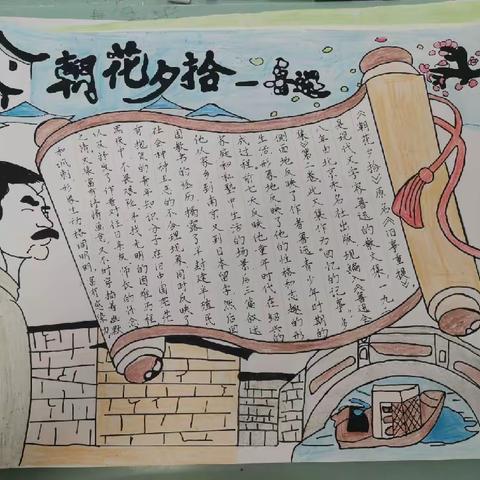 朝花夕拾—鲁迅
《朝花夕拾》原名《旧事重提》，
是现代文学家鲁迅的散文集，一九二
八年由北京未名社出版，现编入《鲁迅全
集》第2卷，此文集作为回忆的记事，多
侧面地反映了作者鲁迅青少年时期的
生活，形象地反映了他的性格和志趣的形
成过程。前七天反映他童年时代在绍兴的
家庭和私塾中生活的场景，后三篇叙述
他从家乡到南京，又到日本留学，然后回
国教书的经历，揭露了半封建半殖民
社会种种丑恶的不合理现象，同时反映了
有抱负的青年知识分子在旧中国茫茫
黑夜中，不畏艰险，寻找光明的困难历程，
以及抒发了作者对往日亲友、师长的怀念
之情。文集
和讽刺，形象生动，格调明朗